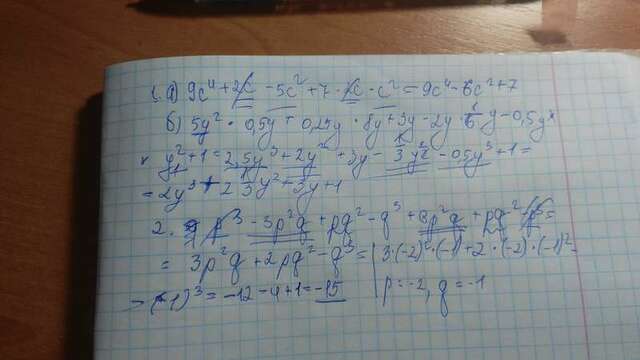 1. а) 9c⁴ + 2c - 5c² + 7 - 2c - c² = 9c⁴ - 6c² + 7
б) 5y² · 0,5y + 0,25y · 8y + 3y - 2y · y - 0,5y ×
× y² + 1 = 2,5y³ + 2y² + 3y - 3y² - 0,5y³ + 1 =
= 2y³ y² + 3y + 1
2. p³ - 3p²q + pq² - q³ + p²q + pq² - p³ =
= 3p²q + 2pq² - q³ = | 3·(-2)²·(-1) + 2·(-2)·(-1)² -
- (-1)³ = -12 - 4 + 1 = -15 | p = -2, q = -1